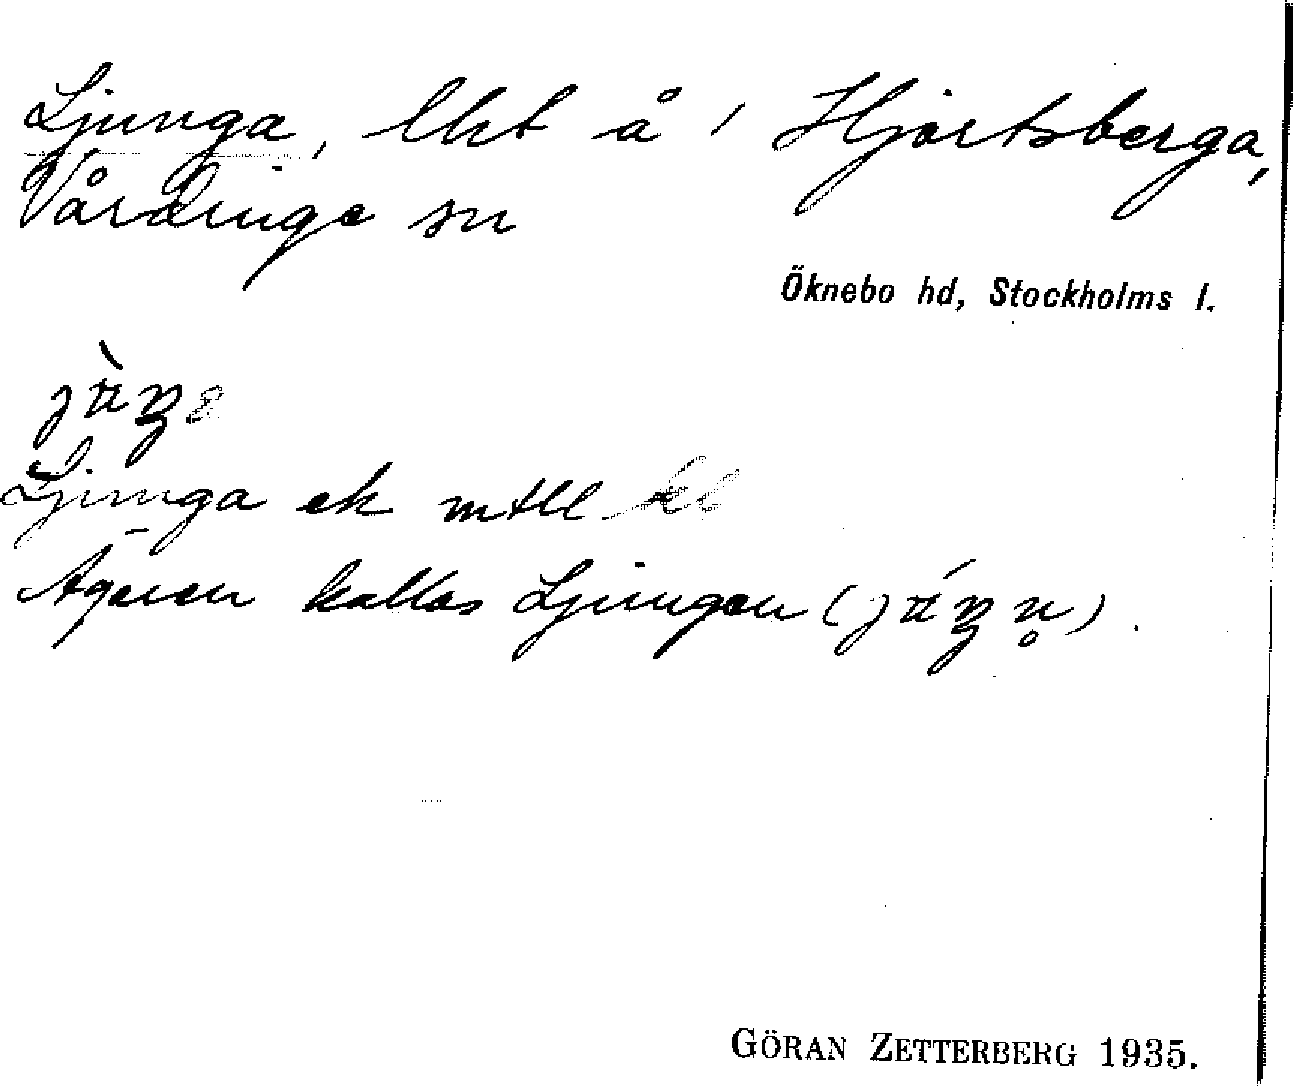 Ljunga, lht å Hjortsberga,
Vårdinge sn
Öknebo hd, Stockholms l.
Ljunga ek mtll
Ägaren kallas Ljungen
GÖRAN ZETTERBERG 1935.